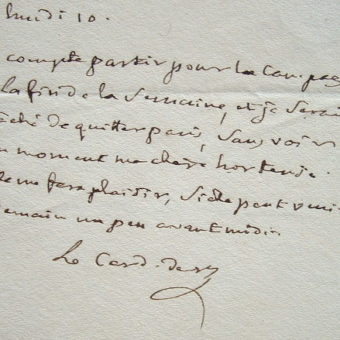 lundi 10.
compte partir pour la campag
la fin de la semaine, et je serai
ché de quitter paris, sans voir
n moment ma chère hortense.
me fera plaisir, si elle peut veni
demain un peu avant midi.
Le Card.